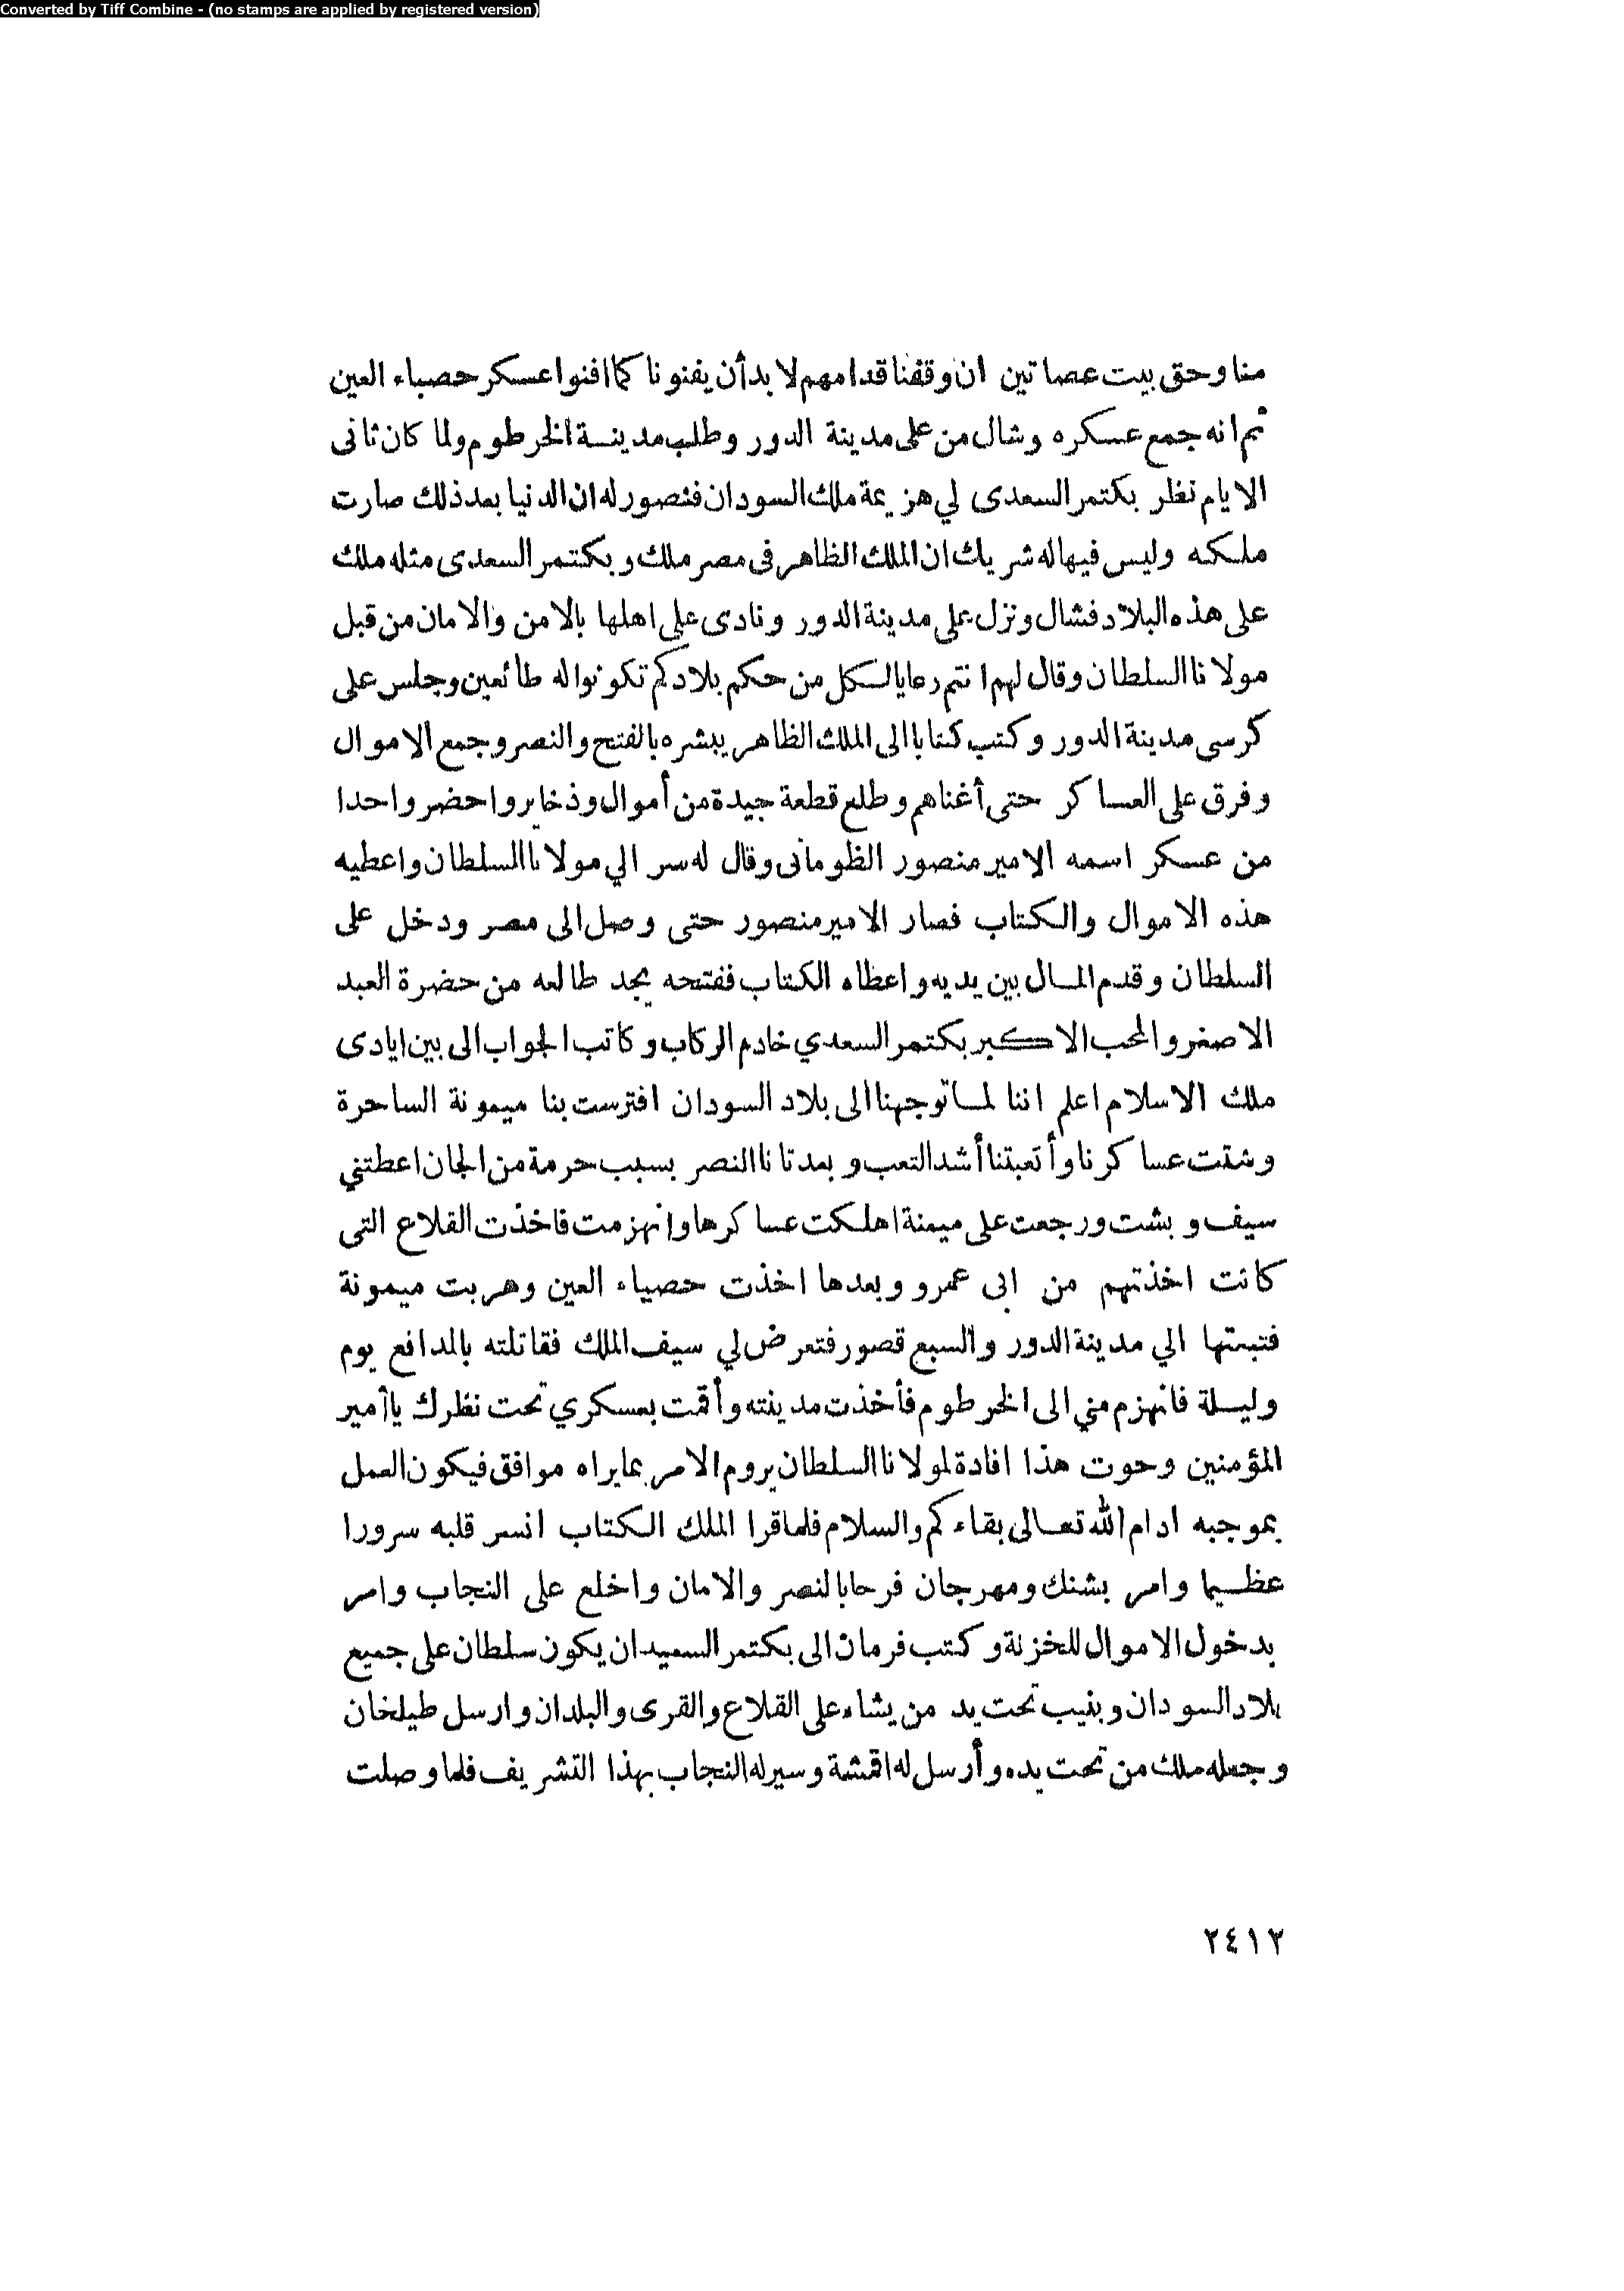 Converted by Tiff Combine - (no stamps are applied by registered version)
منا وحق بيت عصاتين ان وقفنا قدامهم لا بد أن يفنونا كما افنوا عسكر حصباء العين
ثم انه جمع عسكره وشال من على مدينة الدور وطلب مدينة الخرطوم ولما كان ثانى
الايام نظر بكتمر السعدى لي هزيمة ملك السودان فتصور له ان الدنيا بعد ذلك صارت
ملكه وليس فيها له شريك ان الملك الظاهر فى مصر ملك وبكتمر السعدى مثله ملك
على هذه البلاد فشال ونزل على مدينة الدور ونادى على اهلها بالامن والامان من قبل
مولانا السلطان وقال لهم انتم رعايا لكل من حكم بلادكم تكونوا له طائعين وجلس على
كرسى مدينة الدور وكتب كتابا الى الملك الظاهر يبشره بالفتح والنصر وجمع الاموال
وفرق على العساكر حتى أغناهم وطلع قطعة جيدة من أموال وذخاير واحضر واحدا
من عسكر اسمه الامير منصور الظومانى وقال له سر الي مولانا السلطان واعطيه
هذه الاموال والكتاب فصار الامير منصور حتى وصل الى مصر ودخل على
السلطان وقدم المال بين يديه واعطاه الكتاب ففتحه يجد طالعه من حضرة العبد
الاصغر والمحب الاكبر بكتمر السعدي خادم الركاب وكاتب الجواب الى بين ايادى
ملك الاسلام اعلم اننا لما توجهنا الى بلاد السودان افترست بنا ميمونة الساحرة
وشتت عساكرنا وأتعبتنا أشد التعب وبعد تانا النصر بسبب حرمة من الجان اعطتني
سيف وبشت ورجعت على ميمنة اهلكت عساكرها وانهزمت فاخذت القلاع التى
كانت اخذتهم من ابى عمرو وبعدها اخذت حصياء العين وهربت ميمونة
فتبعتها الي مدينة الدور والسبع قصور فتعرض لي سيف الملك فقاتلته بالمدافع يوم
وليلة فانهزم مني الى الخرطوم فأخذت مدينته وأقمت بعسكري تحت نظرك يا أمير
المؤمنين وحوت هذا افادة لمولانا السلطان يروم الامر بما يراه موافق فيكون العمل
بموجبه ادام الله تعالى بقاءكم والسلام فلما قرا الملك الكتاب انسر قلبه سرورا
عظيما وامر بشنك ومهرجان فرحا بالنصر والامان واخلع على النجاب وامر
بدخول الاموال للخزنة وكتب فرمان الى بكتمر السعيد ان يكون سلطان على جميع
بلاد السودان وبنيب تحت يد من يشاء على القلاع والقرى والبلدان وارسل طيلخان
وجعله ملك من تحت يده وأرسل له اقمشة وسير له النجاب بهذا التشريف فلما وصلت
٢٤١٢